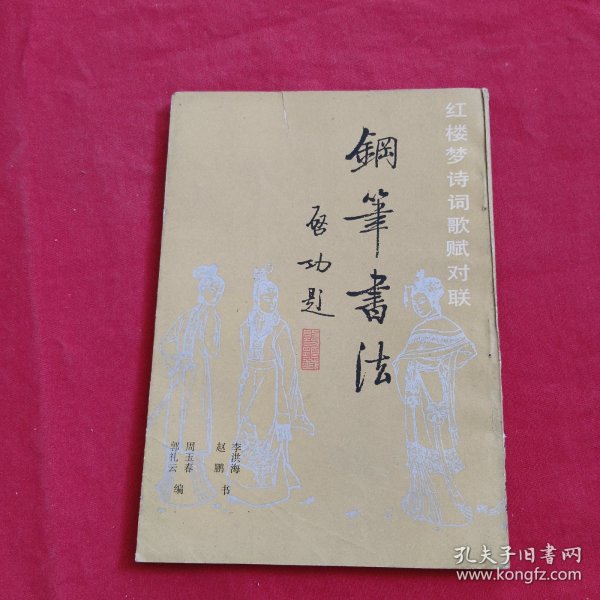 红楼梦诗词歌赋对联
鋼筆書法
启功题
李洪海
赵鹏
书
周玉春
郭礼云
编
孔夫子旧书网
www.kongfz.com